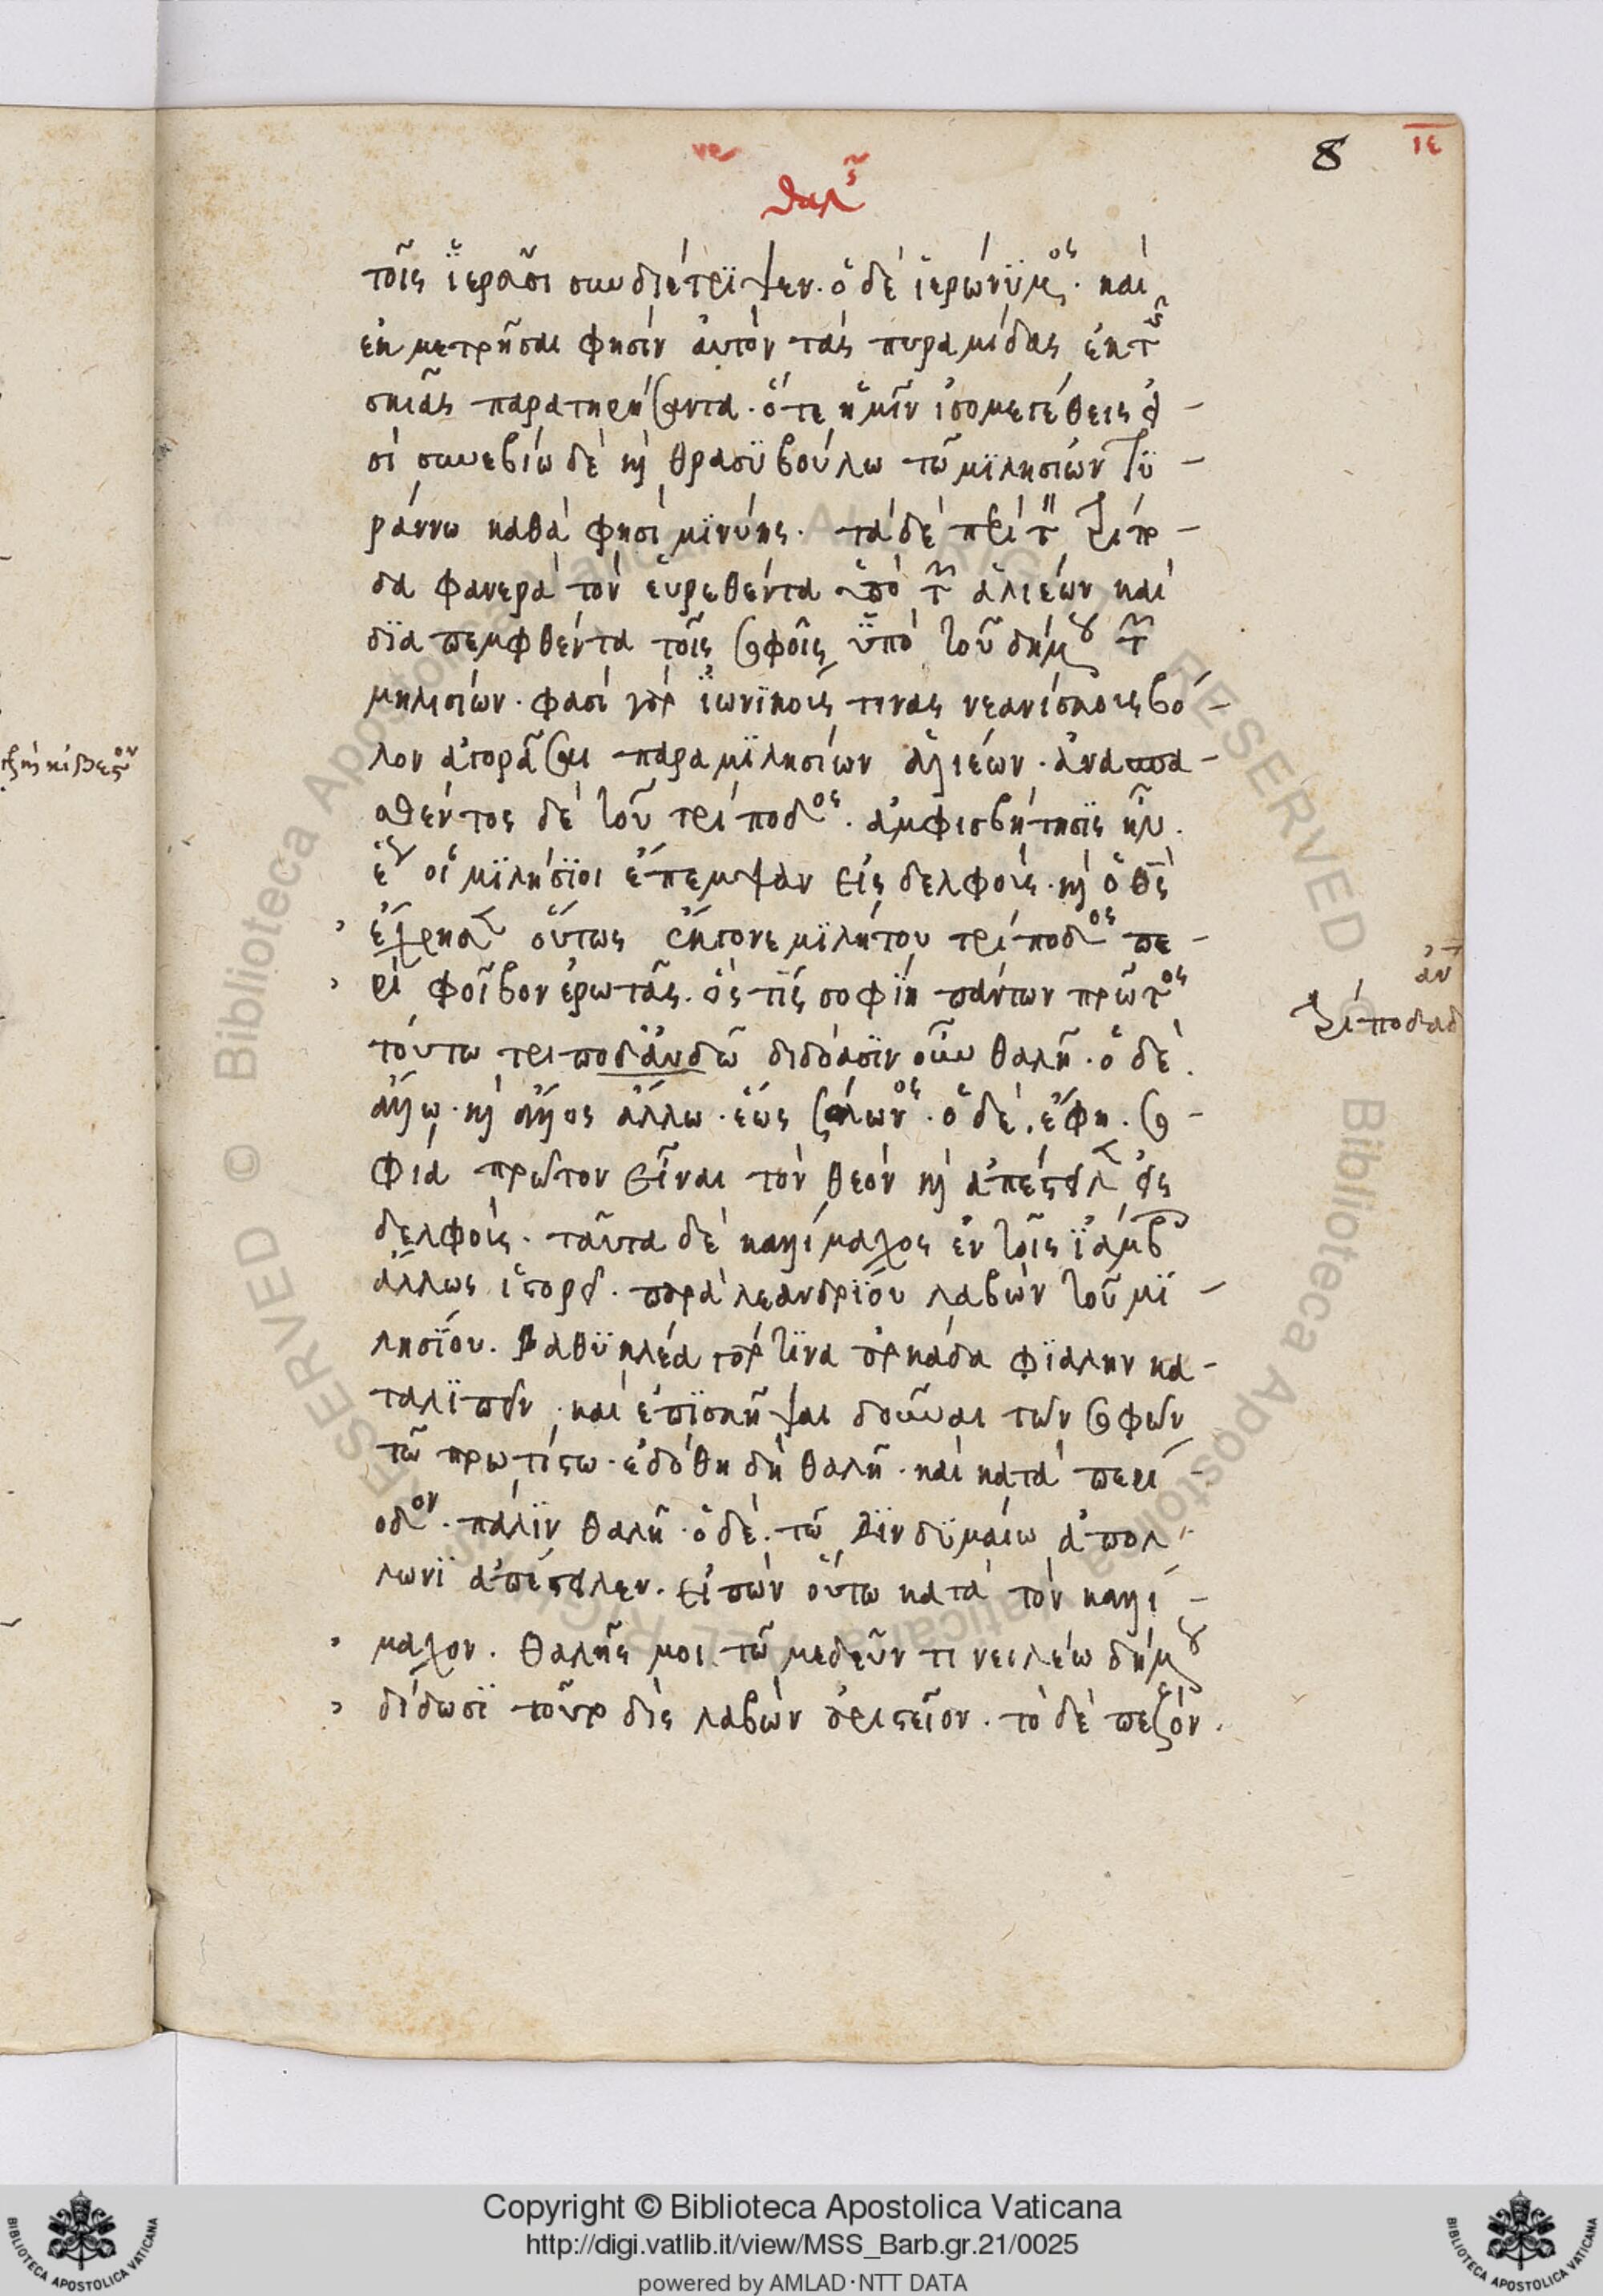 8 ιε
θαλ
τοῖς ἱερεῦσι συνδιέτριψεν. ὁ δὲ ἱερώνυμος. καὶ
ἐκμετρῆσαι φησὶν αὐτὸν τὰς πυραμίδας ἐκ τῆς
σκιᾶς παρατηρήσαντα. ὅτε ἡμῖν ἰσομεγέθεις εἰ-
σί συνεβίω δὲ καὶ θρασυβούλω τῶ μιλησίων τυ-
ράννω καθά φησι μινύης. τὰ δὲ περὶ τὸν τρίπο-
δα φανερὰ τὸν εὑρεθέντα ὑπὸ τῶν ἁλιέων καὶ
διαπεμφθέντα τοῖς σοφοῖς ὑπὸ τοῦ δήμου τῶν
μηλισίων. φασὶ γὰρ ἰωνικούς τινας νεανίσκους βό-
λον ἀγορᾶσαι παρα μιλησίων ἁλιέων. ἀνασπα-
σθέντος δὲ τοῦ τρίποδος. ἀμφισβήτησις ἦν.
ἕως οἱ μιλήσιοι ἔπεμψαν εἰς δελφούς. καὶ ὁ θεὸς
ἔχρησεν οὕτως ἔκγονε μιλήτου τρίποδος πε-
ρὶ φοῖβον ἐρωτᾶς. ὃς τίς σοφίη πάντων πρῶτος
τούτω τριποδ᾽αὐδῶ διδόασιν οὖν θαλῆ. ὁ δὲ
ἄλλω. καὶ ἄλλος ἄλλω. ἕως σόλωνος. ὁ δὲ. ἔφη. σο-
φία πρῶτον εἶναι τὸν θεὸν καὶ ἀπέστειλεν εἰς
δελφούς. ταῦτα δὲ καλλίμαχος ἐν τοῖς ἰάμβοις
ἄλλως ἱστορεῖ. παρὰ λεανδρίου λαβὼν τοῦ μι-
λησίου. βαθυκλέα γάρ τινα ἀρκάδα φιάλην κα-
ταλιπεῖν. καὶ ἐπισκῆψαι δοῦναι τῶν σοφῶν
τῶ πρωτίστω. ἐδόθη δὴ θαλῆ. καὶ κατὰ περί-
οδον. πάλιν θαλῆ. ὁ δὲ. τῶ δινδυμαίω ἀπόλ-
λωνι ἀπέστειλεν. εἰπὼν οὕτω κατὰ τὸν καλλί-
μαχον. θαλῆς μοι τῶ μεδεῦντι νειλέω δήμου
δίδωσι τοῦτο δὶς λαβὼν ἀριστεῖον. τὸ δὲ πεζόν.
Copyright © Biblioteca Apostolica Vaticana
http://digi.vatlib.it/view/MSS_Barb.gr.21/0025
powered by AMLAD·NTT DATA